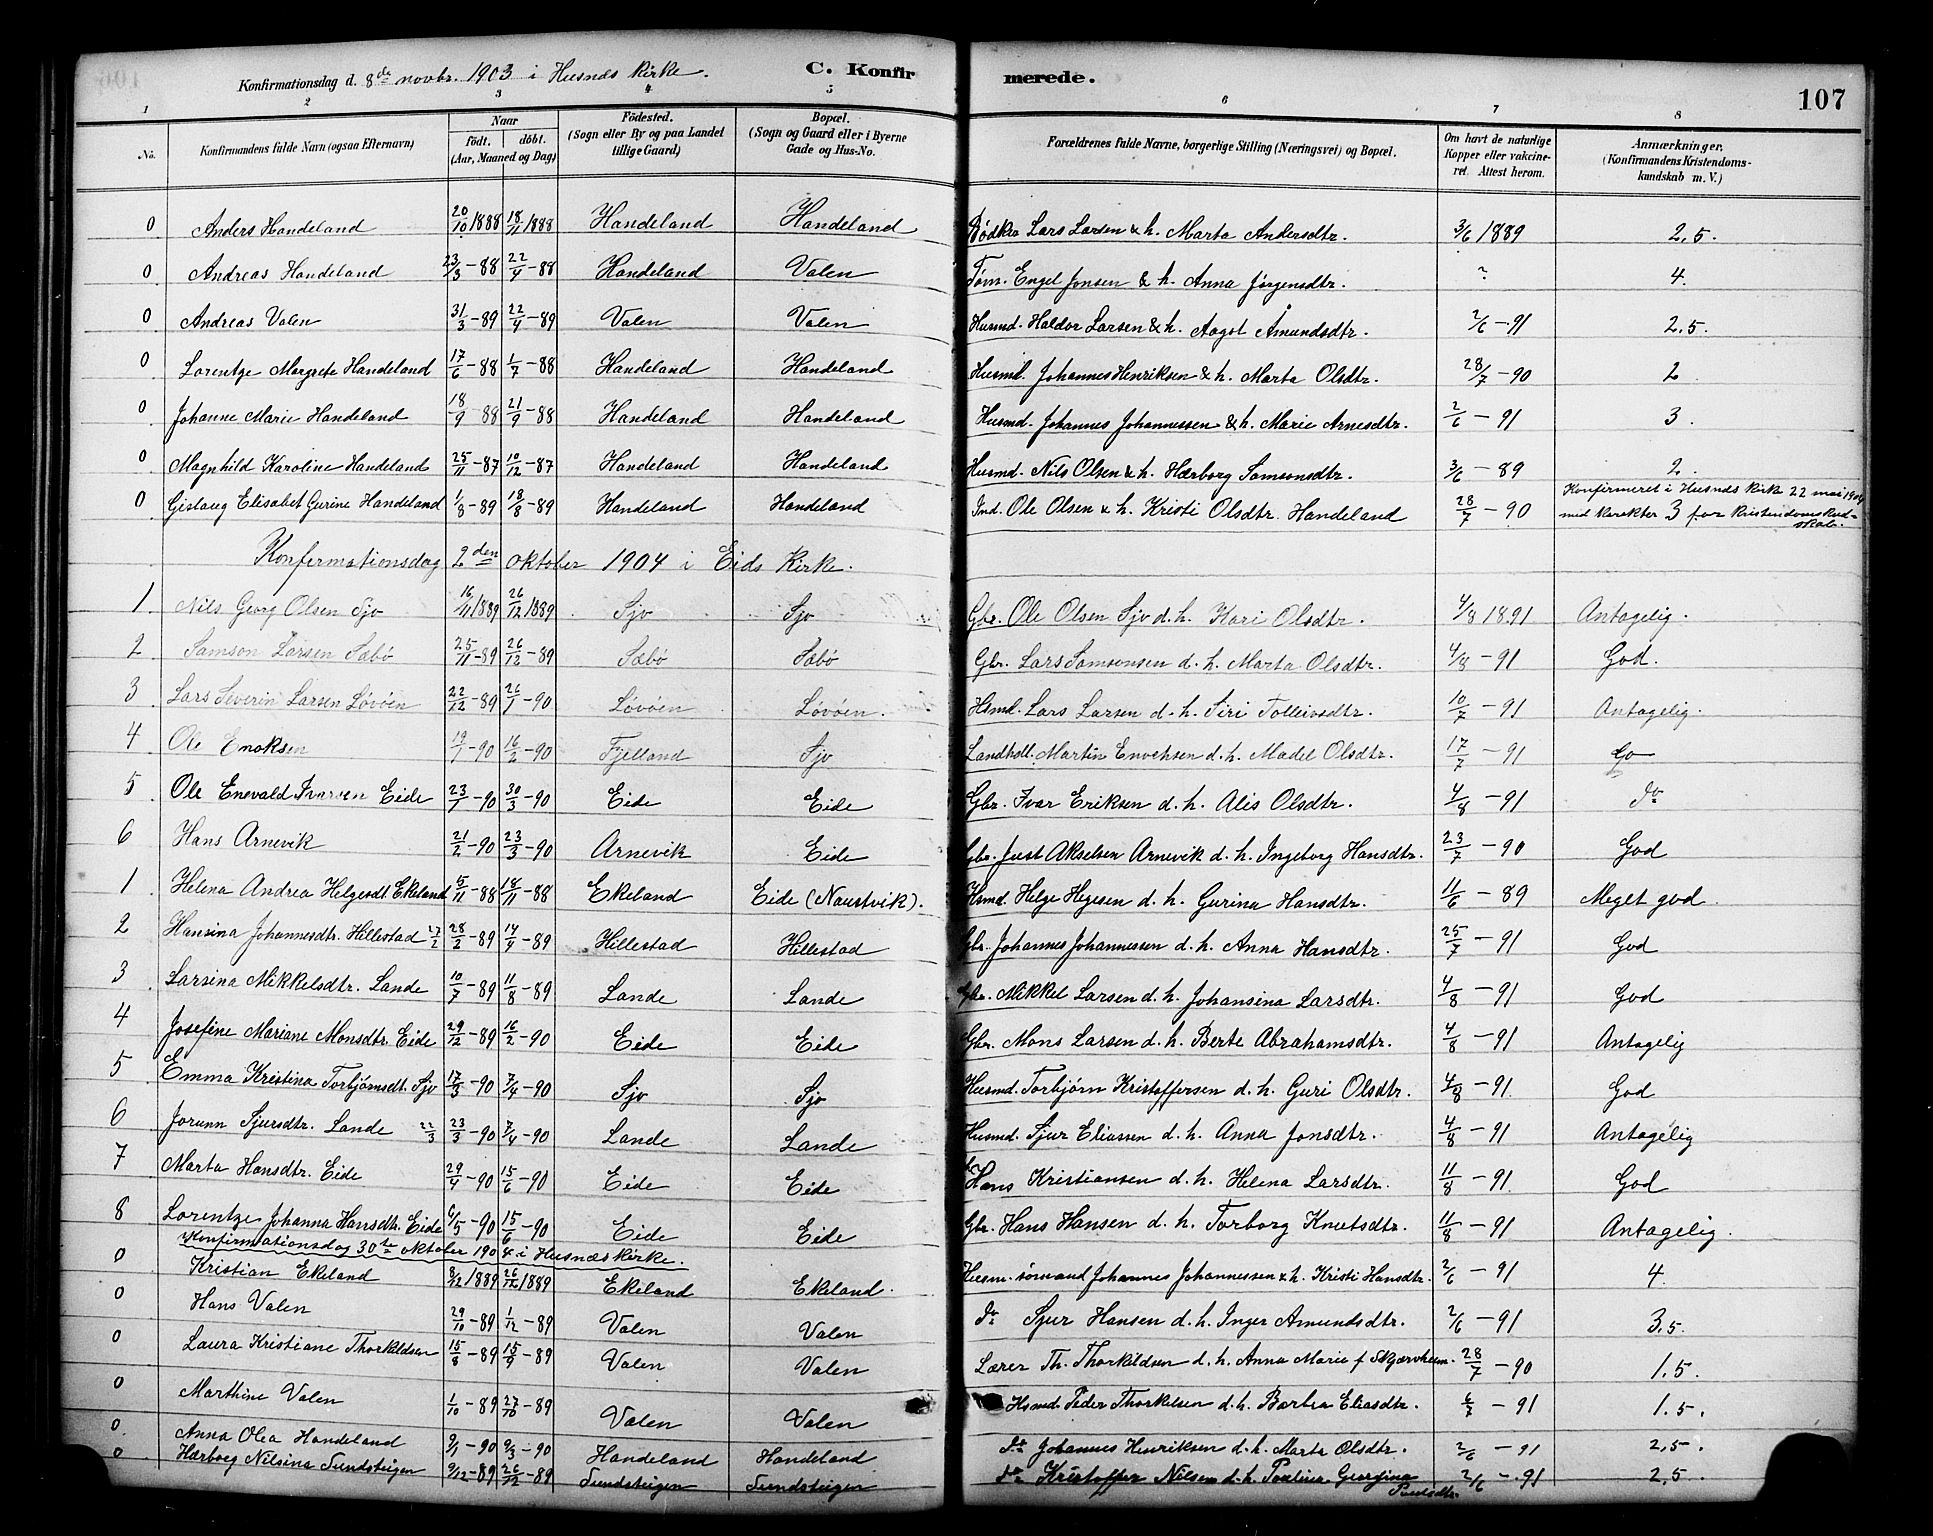 Konfirmationsdag d. 8de novbr. 1903 i Husnæs kirke. C. Konfirmerede. 107
1 2 3 4 5 6 7 8
No. | Konfirmandens fulde Navn (ogsaa Efternavn) | Naar födt. döbt. (Aar, Maaned og Dag) | Födested. (Sogn eller By og paa Landet tillige Gaard) | Bopæl. (Sogn og Gaard eller i Byerne Gade og Hus-No. | Forældrenes fulde Navne, borgerlige Stilling (Næringsvei) og Bopæl. | Om havt de naturlige Kopper eller vakcineret. Attest herom. | Anmærkninger. (Konfirmandens Kristendomskundskab m. V.)
0 Anders Handeland 20/10 1888 18/11 1888 Handeland Handeland Bødker Lars Larsen & h. Marta Andersdtr. 3/6 1889 2,5.
0 Andreas Handeland 23/3-88 22/4-88 Handeland Valen Tøm. Engel Jonsen & h. Anna Jørgensdtr. ? 4.
0 Andreas Valen 31/3-89 22/4-89 Valen Valen Husmd. Haldor Larsen & h. Aagot Åmundsdtr. 2/6-91 2,5.
0 Lorentze Margrete Handeland 17/6-88 1/7-88 Handeland Handeland Husmd. Johannes Henriksen & h. Marta Olsdtr. 28/7-90 2
0 Johanne Marie Handeland 18/9 88 21/9-88 Handeland Handeland Husmd. Johannes Johannessen & h. Marie Arnesdtr. 2/6-91 3.
0 Magnhild Karoline Handeland 25/11-87 10/12-87 Handeland Handeland Husmd. Nils Olsen & h. Hærborg Samsonsdtr. 3/6-89 2.
0 Gislaug Elisabet Gurine Handeland 1/8-89 18/8-89 Handeland Handeland Ind. Ole Olsen & h. Kristi Olsdtr. Handeland 28/7-90 Konfirmeret i Husnæs kirke 22 mai 1904 med karakter 3 for kristendomskundskab.
Konfirmationsdag 2den oktober 1904 i Eids kirke.
1 Nils Georg Olsen Sjo 16/11 1889 26/12 1889 Sjo Sjo Gbr. Ole Olsen Sjo d. h. Kari Olsdtr. 4/8 1891 Antagelig.
2 Samson Larsen Sæbö 25/11-89 26/12-89 Sæbö Sæbö Gbr. Lars Samsonsen d. h. Marta Olsdtr. 4/8-91 God.
3 Lars Severin Larsen Løvöen 22/12-89 26/1-90 Løvöen Løvöen. Hsmd. Lars Larsen d. h. Siri Tolleivsdtr. 10/7-91 Antagelig.
4 Ole Enoksen 19/1-90 16/2-90 Fjelland Sjo Landhdl. Martin Enochsen d. h. Madel Olsdtr. 17/7-91 Go
5 Ole Enevald Ivarsen Eide 23/1-90 30/3-90 Eide Eide Gbr. Ivar Eriksen d. h. Alis Olsdtr. 4/8-91 do
6 Hans Arnevik 21/2-90 23/3-90 Arnevik Eide Gbr. Just Akselsen Arnevik d. h. Ingeborg Hansdtr. 23/7-90 God
1 Helena Andrea Helgesdt. Ekeland 5/11-88 18/11-88 Ekeland Eide (Naustvik). Hsmd. Helge Hegesen d. h. Gurina Hansdtr. 11/6-89 Meget god.
2 Hansina Johannesdtr. Hillestad 27/2 28/2-89 14/4-89 Hillestad Hillestad Gbr. Johannes Johannessen d. h. Anna Hansdtr. 25/7-91 God
3 Larsina Mikkelsdtr. Lande 10/7-89 11/8-89 Lande Lande Gbr. Mikkel Larsen d. h. Johansina Larsdtr. 4/8-91 God
4 Josefine Mariane Monsdtr. Eide 29/12-89 16/2-90 Eide Eide Gbr. Mons Larsen d. h. Berte Abrahamsdtr. 4/8-91 Antagelig
5 Emma Kristina Torbjørnsdt. Sjo 17/3-90 7/4-90 Sjo Sjo Husmd. Torbjørn Kristoffersen d. h. Guri Olsdtr. 4/8-91. God
6 Jorunn Sjursdtr. Lande 22/3 23/3-90 7/4-90 Lande Lande Husmd. Sjur Eliassen d. h. Anna Jonsdtr. 4/8-91 Antagelig
7 Marta Hansdtr. Eide 29/4-90 15/6-90 Eide Eide Hans Kristiansen d. h. Helena Larsdtr. 11/8-91. God
8 Lorentze Johanna Hansdtr. Eide 6/5-90 15/6-90 Eide Eide Gbr. Hans Hansen d. h. Torborg Knutsdtr. 11/8-91 Antagelig.
Konfirmationsdag 30te oktober 1904 i Husnæs kirke.
0 Kristian Ekeland 8/12 1889 26/12 1889 Ekeland Ekeland. Husm. sömand Johannes Johannessen & h. Kristi Hansdtr. 2/6-91 4.
0 Hans Valen 29/10-89 1/12-89 Valen Valen do Sjur Hansen d. h. Inger Amundsdtr. 2/6-91 3,5.
0 Laura Kristiane Thorkildsen 15/8-89 15/9-89 Valen Valen Lærer Th. Thorkildsen d. h. Anna Marie f Skjærvheim. 28/7-90 1.5.
0 Marthine Valen 1/10-89 27/10-89 Valen Valen Hsmd. Peder Thorkelsen d. h. Barbra Eliasdtr. 6/7-91 1.5.
0. Anna Olea Handeland 9/1-90 9/3-90 Handeland Handeland do Johannes Henriksen d. h. Marta Olsdtr. 2/6-91 2,5.
0 Hærborg Nilsina Sundsteigen 9/12-89 26/12-89 Sundsteigen Sundsteigen do Kristoffer Nilsen d. h. Paulina Georgina Paulsdtr. 2/6-91 2,5.